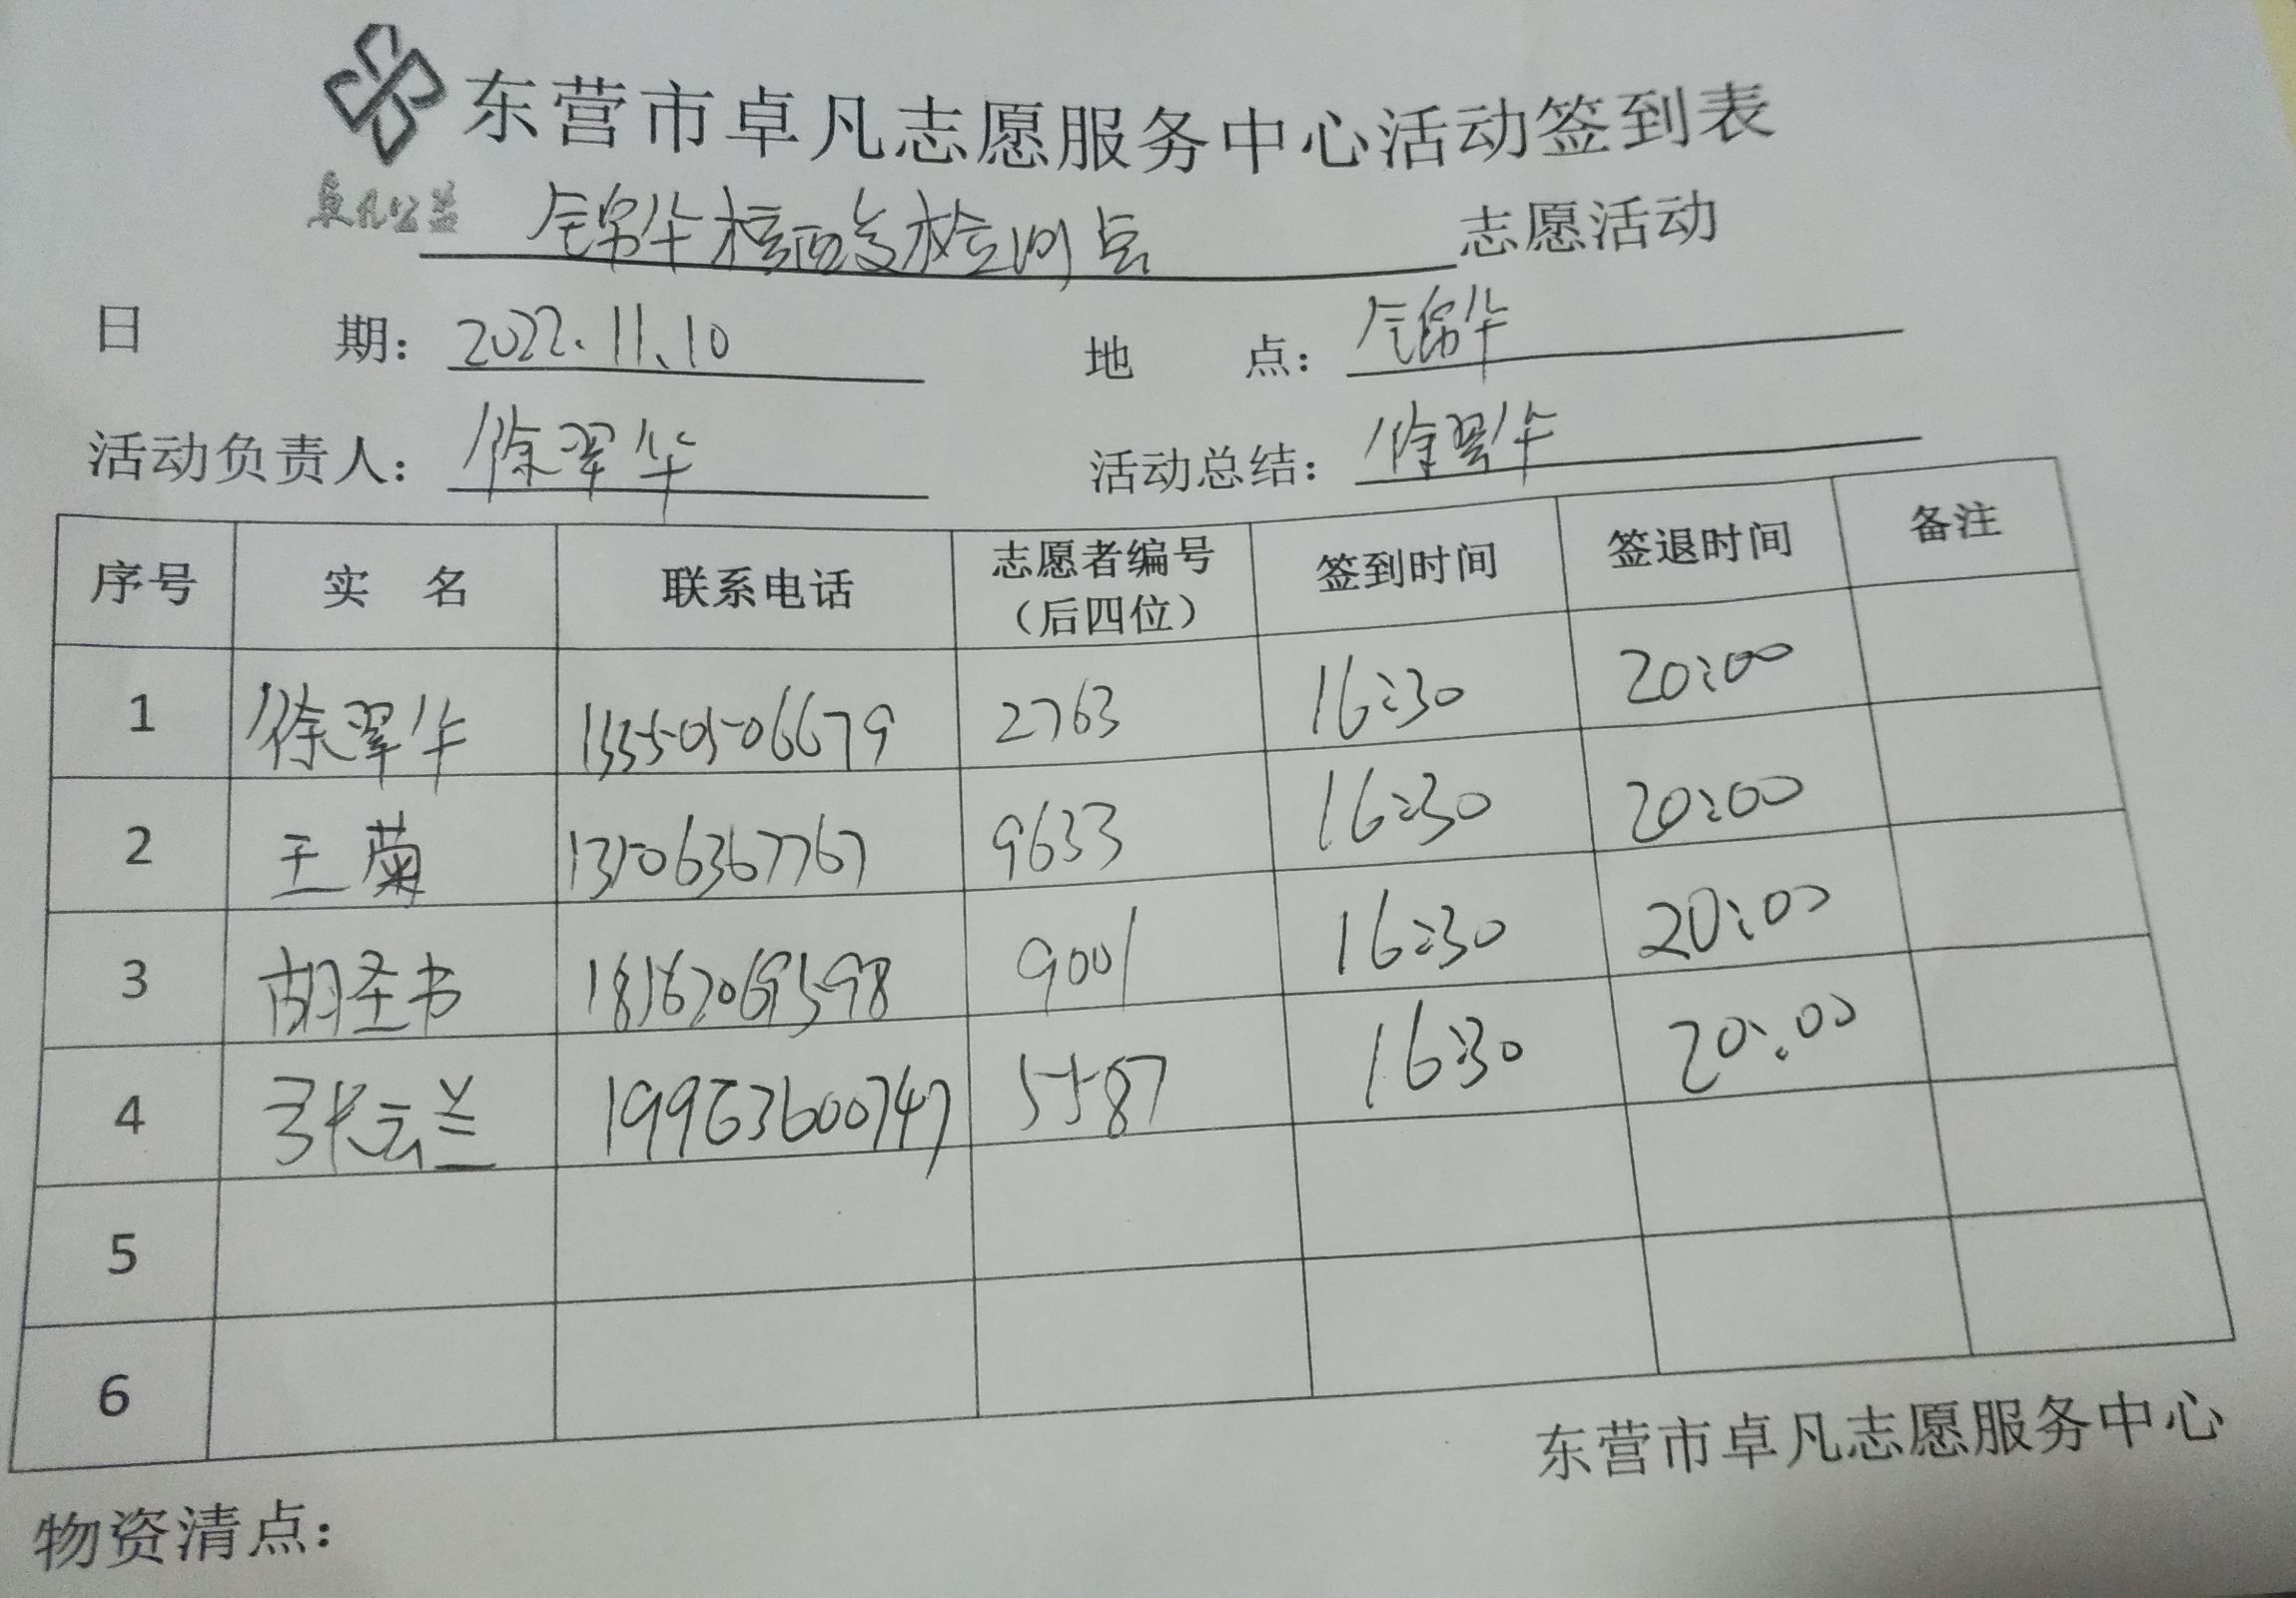 东营市卓凡志愿服务中心活动签到表
卓凡公益
锦华核酸检测点 志愿活动
日 期： 2022.11.10 地 点： 锦华
活动负责人： 徐翠华 活动总结： 徐翠华
序号 实 名 联系电话 志愿者编号（后四位） 签到时间 签退时间 备注
1 徐翠华 13550506679 2763 16:30 20:00
2 王菊 13506367767 9633 16:30 20:00
3 胡圣书 9001 16:30 20:00
4 张云兰 19963600747 5587 16:30 20:00
5
6
东营市卓凡志愿服务中心
物资清点：